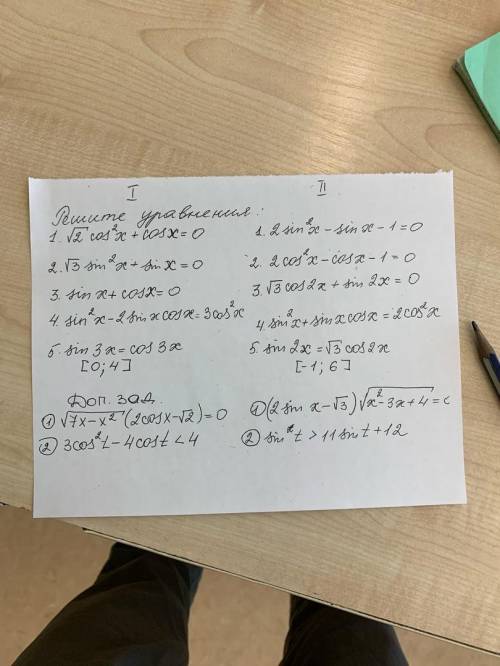 I
II
Решите уравнения:
1. √2 cos²x + cosx = 0
2. √3 sin²x + sinx = 0
3. sinx + cosx = 0
4. sin²x - 2 sinx cosx = 3cos²x
5. sin 3x = cos 3x
[0; 4]
Доп. зад.
① √7x-x² (2cosx-√2) = 0
② 3cos²t - 4cost < 4
1. 2 sin²x - sinx - 1 = 0
2. 2cos²x - cosx - 1 = 0
3. √3 cos2x + sin 2x = 0
4 sin²x + sinx cosx = 2cos²x
5. sin2x = √3 cos2x
[-1; 6]
① (2 sin x - √3) √x²-3x+4 =
② sin²t > 11 sint + 12